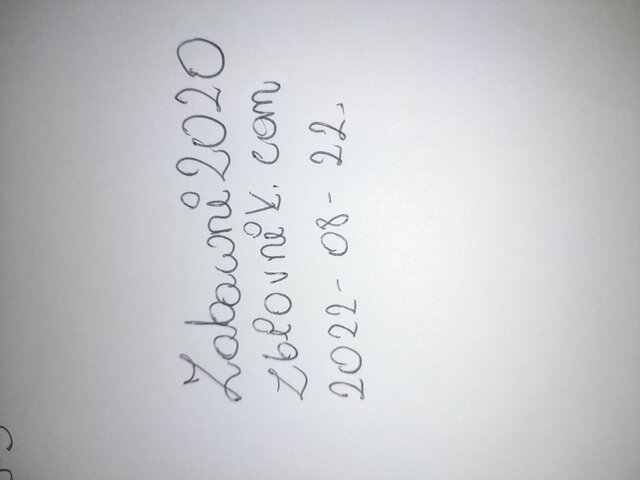 Zabawni2020
Zbiovnik.com
2022-08-22.